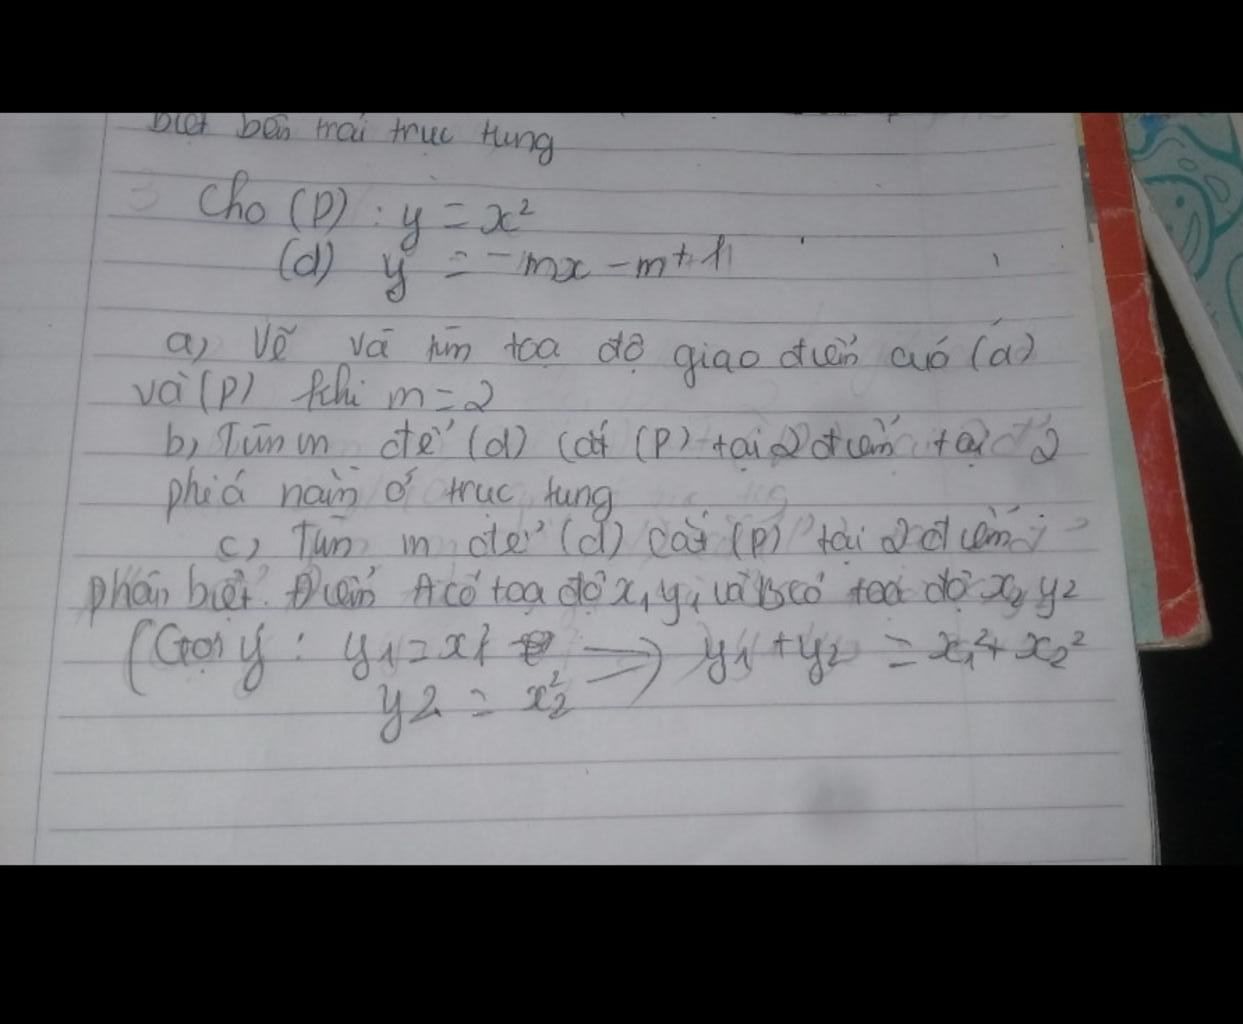 biệt bên trái trục tung
Cho (P) : y = x²
(d) y = -mx - m + 1
a) Vẽ và tìm toạ độ giao điểm của (d)
và (P) khi m = 2
b) Tìm m để (d) cắt (P) tại 2 điểm tại 2
phía nằm ở trục tung
c) Tìm m để (d) cắt (P) tại 2 điểm
phân biệt. Điểm A có toạ độ x₁ y₁ và B có toạ độ x₂ y₂
(Gợi ý : y₁ = x₁² → y₁ + y₂ = x₁² + x₂²
y₂ = x₂²